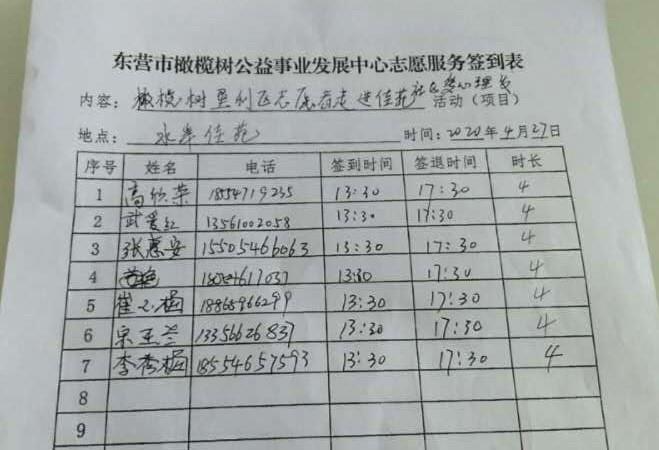 东营市橄榄树公益事业发展中心志愿服务签到表
内容: 橄榄树 志愿者走进佳苑社区 活动(项目)
地点: 水岸佳苑 时间:2020年4月27日
序号 姓名 电话 签到时间 签退时间 时长
1 高欣荣 18554719235 13:30 17:30 4
2 武爱红 13561002058 13:30 17:30 4
3 张惠安 15505466063 13:30 17:30 4
4 13:30 17:30 4
5 崔 18868966299 13:30 17:30 4
6 宋玉兰 13356626837 13:30 17:30 4
7 李秀梅 18554657593 13:30 17:30 4
8
9